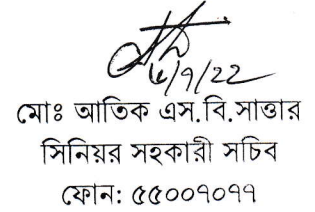 ৬/৭/22
মোঃ আতিক এস.বি.সাত্তার
সিনিয়র সহকারী সচিব
ফোন: ৫৫০০৭০৭৭